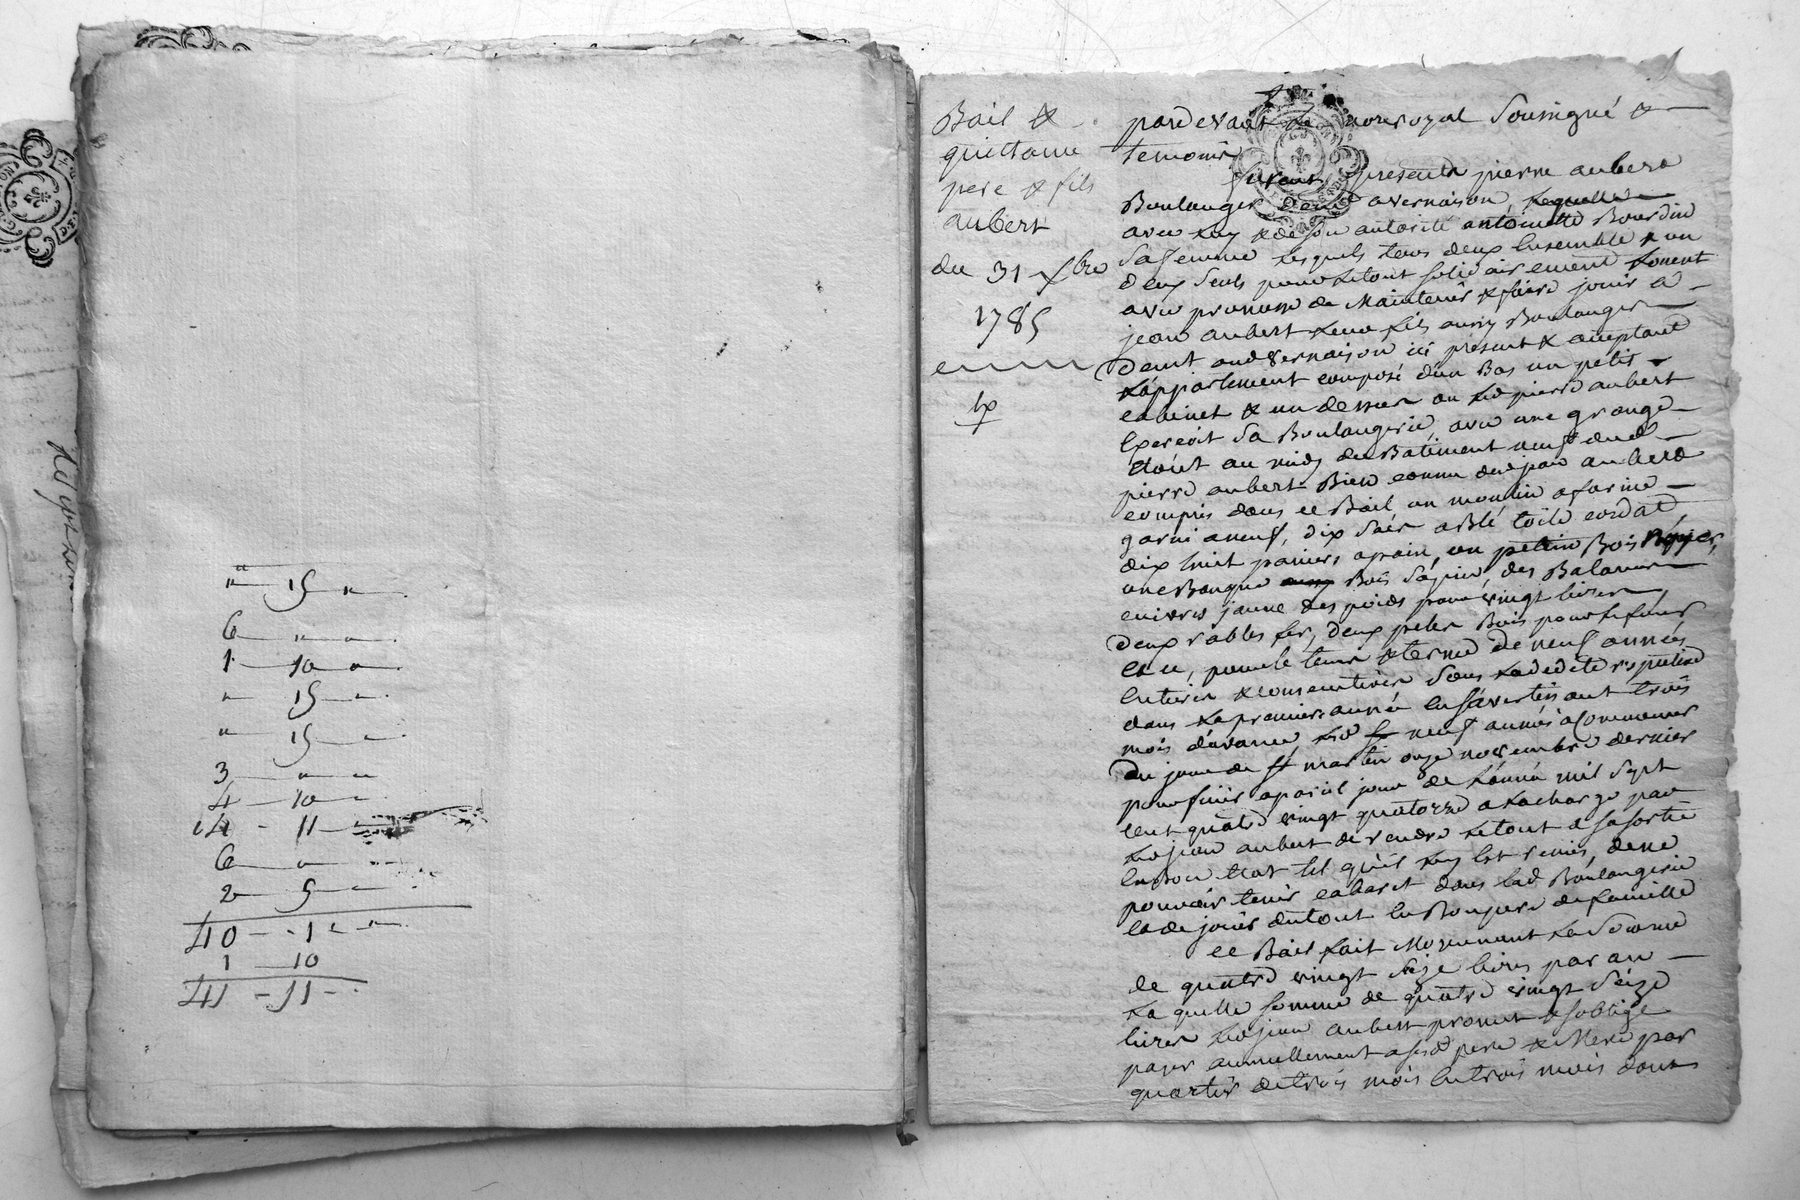 " 15 "
6 " "
1 10 "
" 15 "
" 15 "
3 " "
4 10 "
14 11 "
6 "
2 5 "
40 1 "
1 10
41 11
Bail &
quittance
pere & fils
aubert
du 31 xbre
1785
pardevant le nore royal soussigné &
temoins
furent presents pierre aubert
Boulanger demt a vernaison, lequelle
avec luy & de son autorité antoinette Bourdin
sa femme lesquels tous deux ensemble & un
deux seuls pour le tout solidairement louent
avec promesse de maintenir & faire jouir a
jean aubert leur fils aussy Boulanger
demt aud vernaison ici présent & acceptant
l'appartement composé d'un Bas un petit
cabinet & un dessus ou led pierre aubert
Exercoit sa Boulangerie, avec une grange
étant au midy du Batiment neuf dud
pierre aubert Bien connu dud jean aubert
compris dans ce Bail un moulin a farine
garni a neuf, dix sacs a Blé toile cordat
dix huit paniers a pain, un petrin Bois noyer,
une Banque Bois sapin, des Balances
cuivre jaune les poids pour vingt livres
deux rables fer, deux peles Bois pour le four
et ce, pour le tems & terme de neuf années
Entieres & consecutives sous led
dans la premiere année en s'avertissant trois
mois d'avance led neuf années a commencer
du jour de st martin onze novembre dernier
pour finir a pareil jour de l'année mil sept
cent quatre vingt quatorze a la charge par
led jean aubert de rendre le tout a sa sortie
en son etat tel qu'il luy est remis, de ne
pouvoir tenir cabaret dans lad Boulangerie
et de jouir du tout en Bon pere de famille
ce Bail fait moyennant la somme
de quatre vingt seize livres par an
la quelle somme de quatre vingt seize
livres led jean aubert promet & s'oblige
payer annuellement a sesd pere & Mere par
quartier de trois mois en trois mois dont